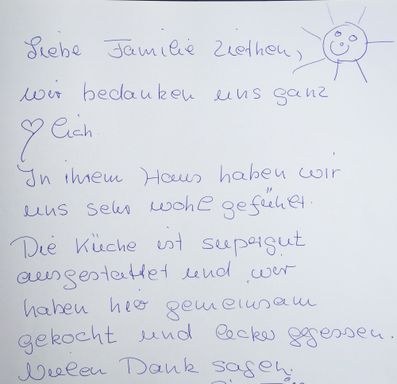 Liebe Familie Ziethen,
wir bedanken uns ganz
♡lich.
In ihrem Haus haben wir
uns sehr wohl gefühlt.
Die Küche ist supergut
ausgestattet und wir
haben hier gemeinsam
gekocht und lecker gegessen.
Vielen Dank sagen